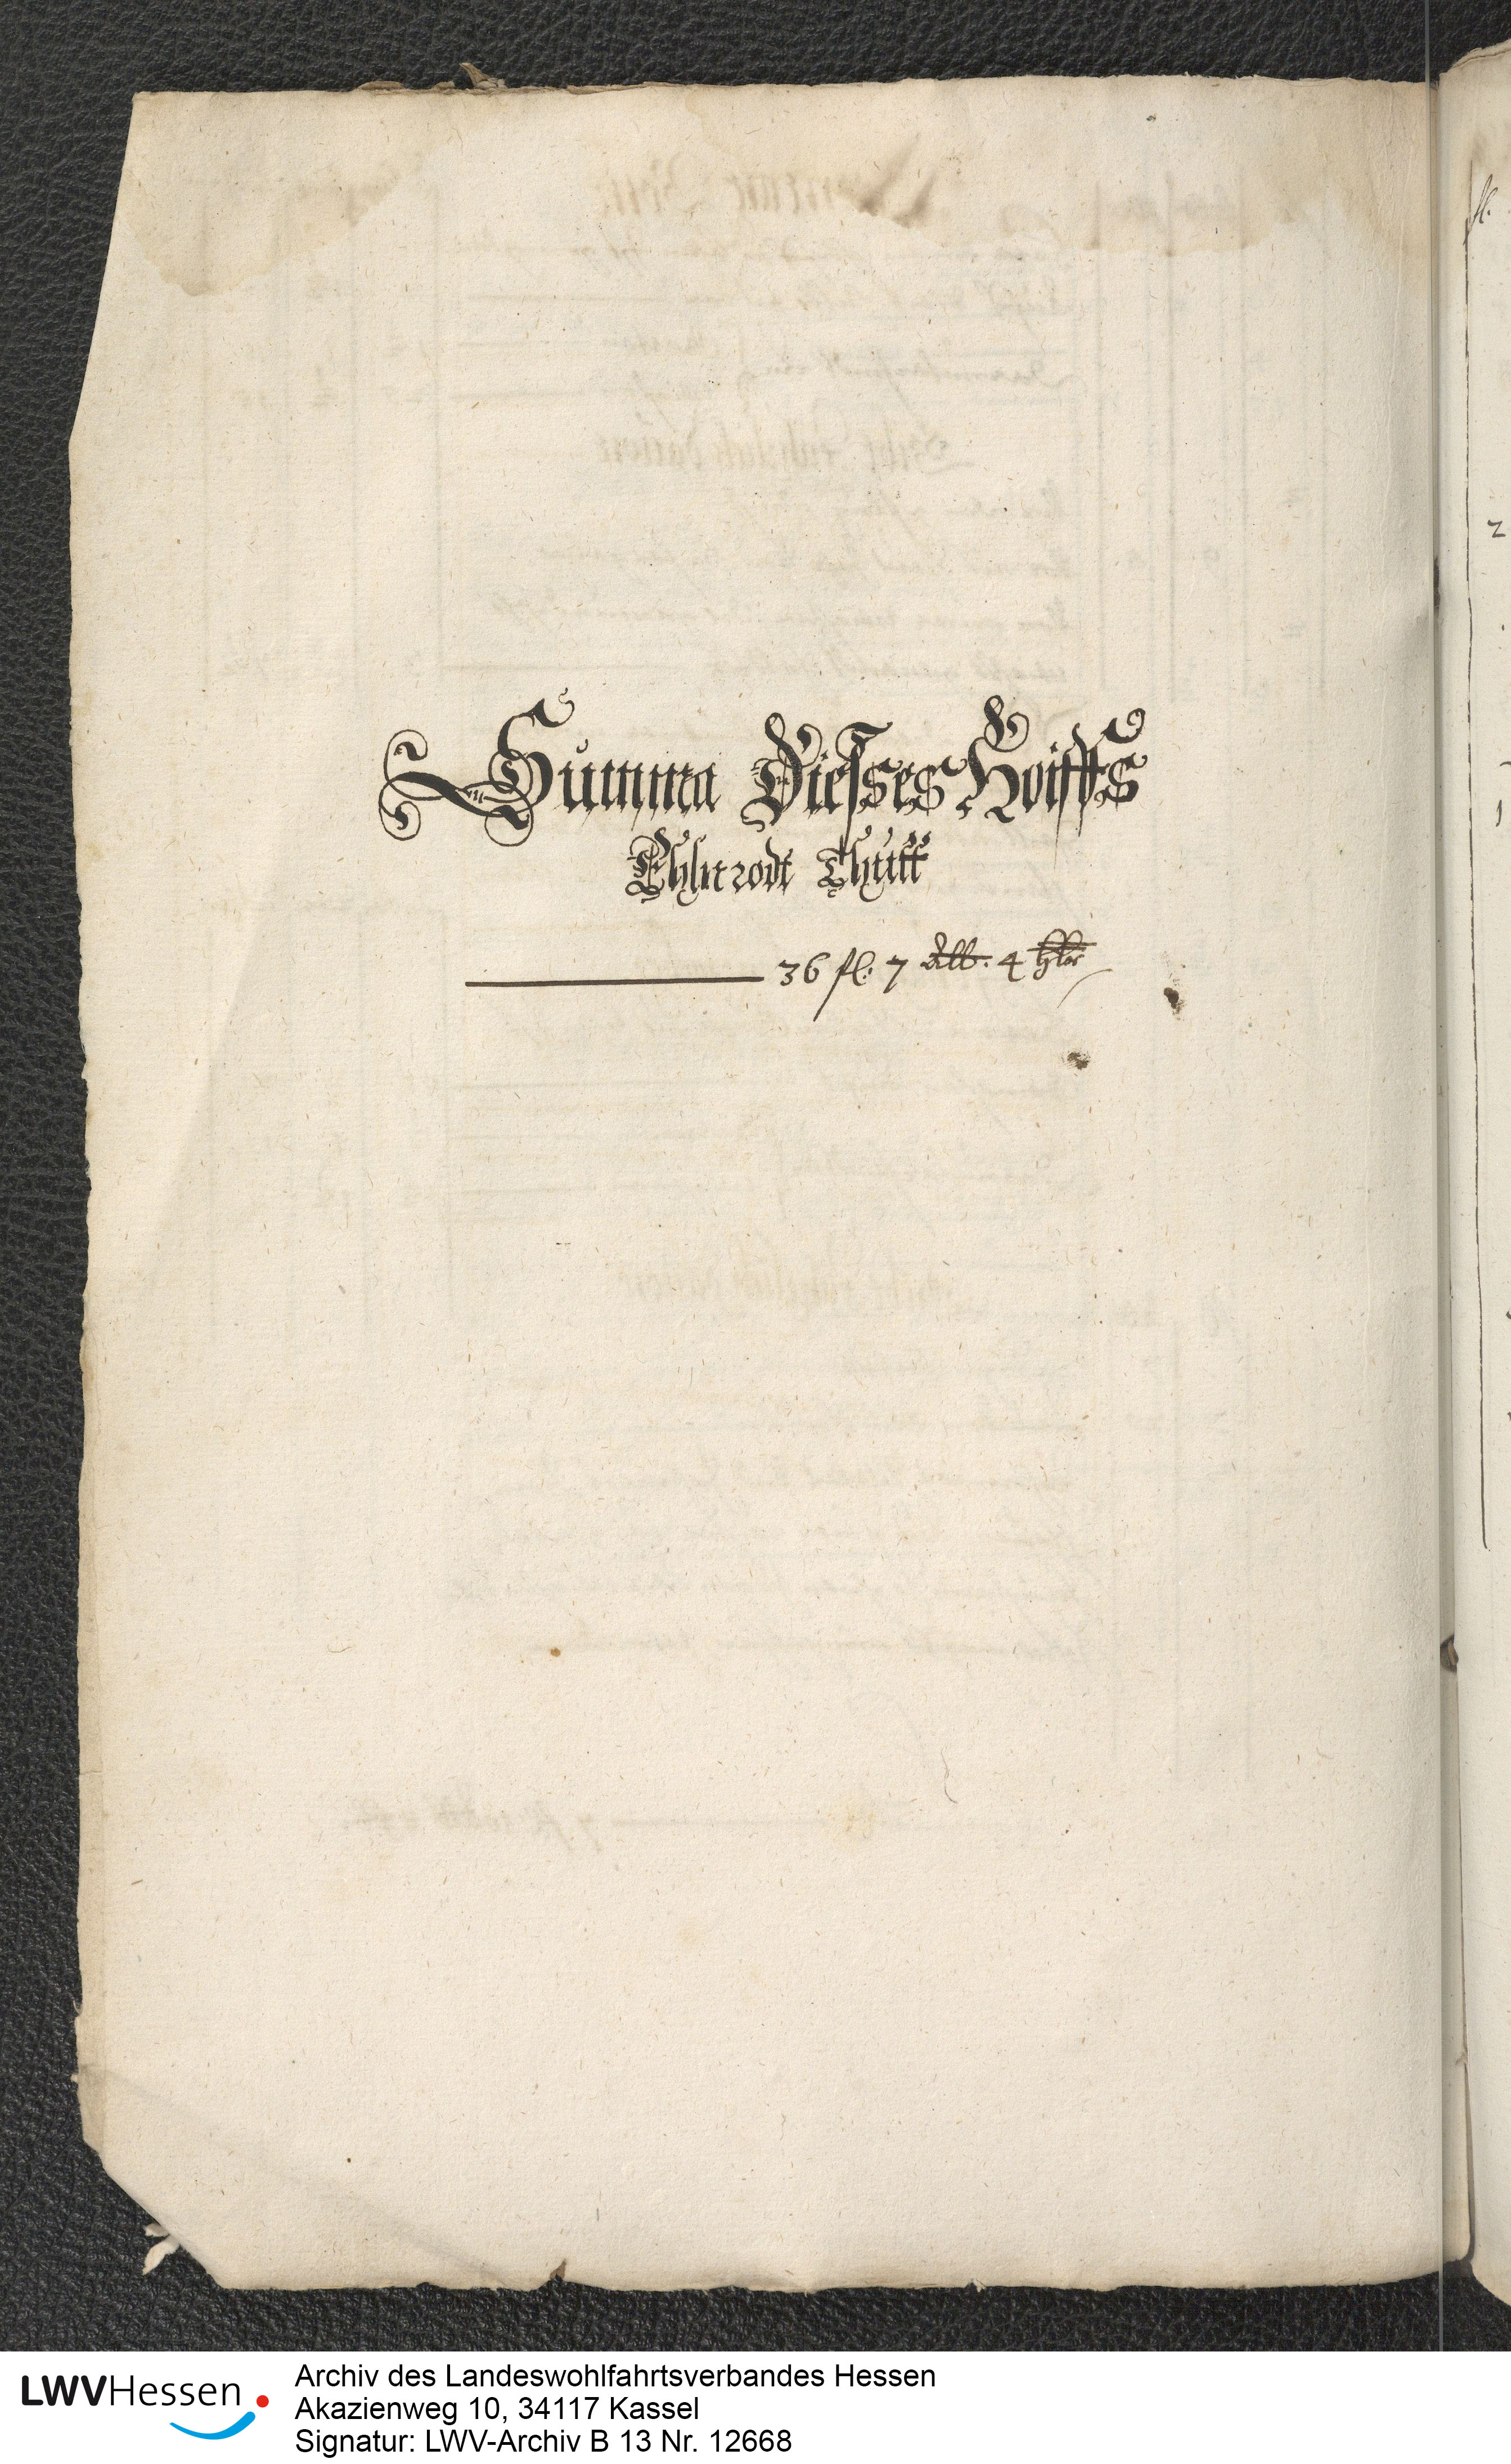 Summa Dieses Hoiffs
Ehlnrodt Thutt
36 fl: 7 Alb: 4 hlr
fl.
2
1
LWVHessen
Archiv des Landeswohlfahrtsverbandes Hessen
Akazienweg 10, 34117 Kassel
Signatur: LWV-Archiv B 13 Nr. 12668